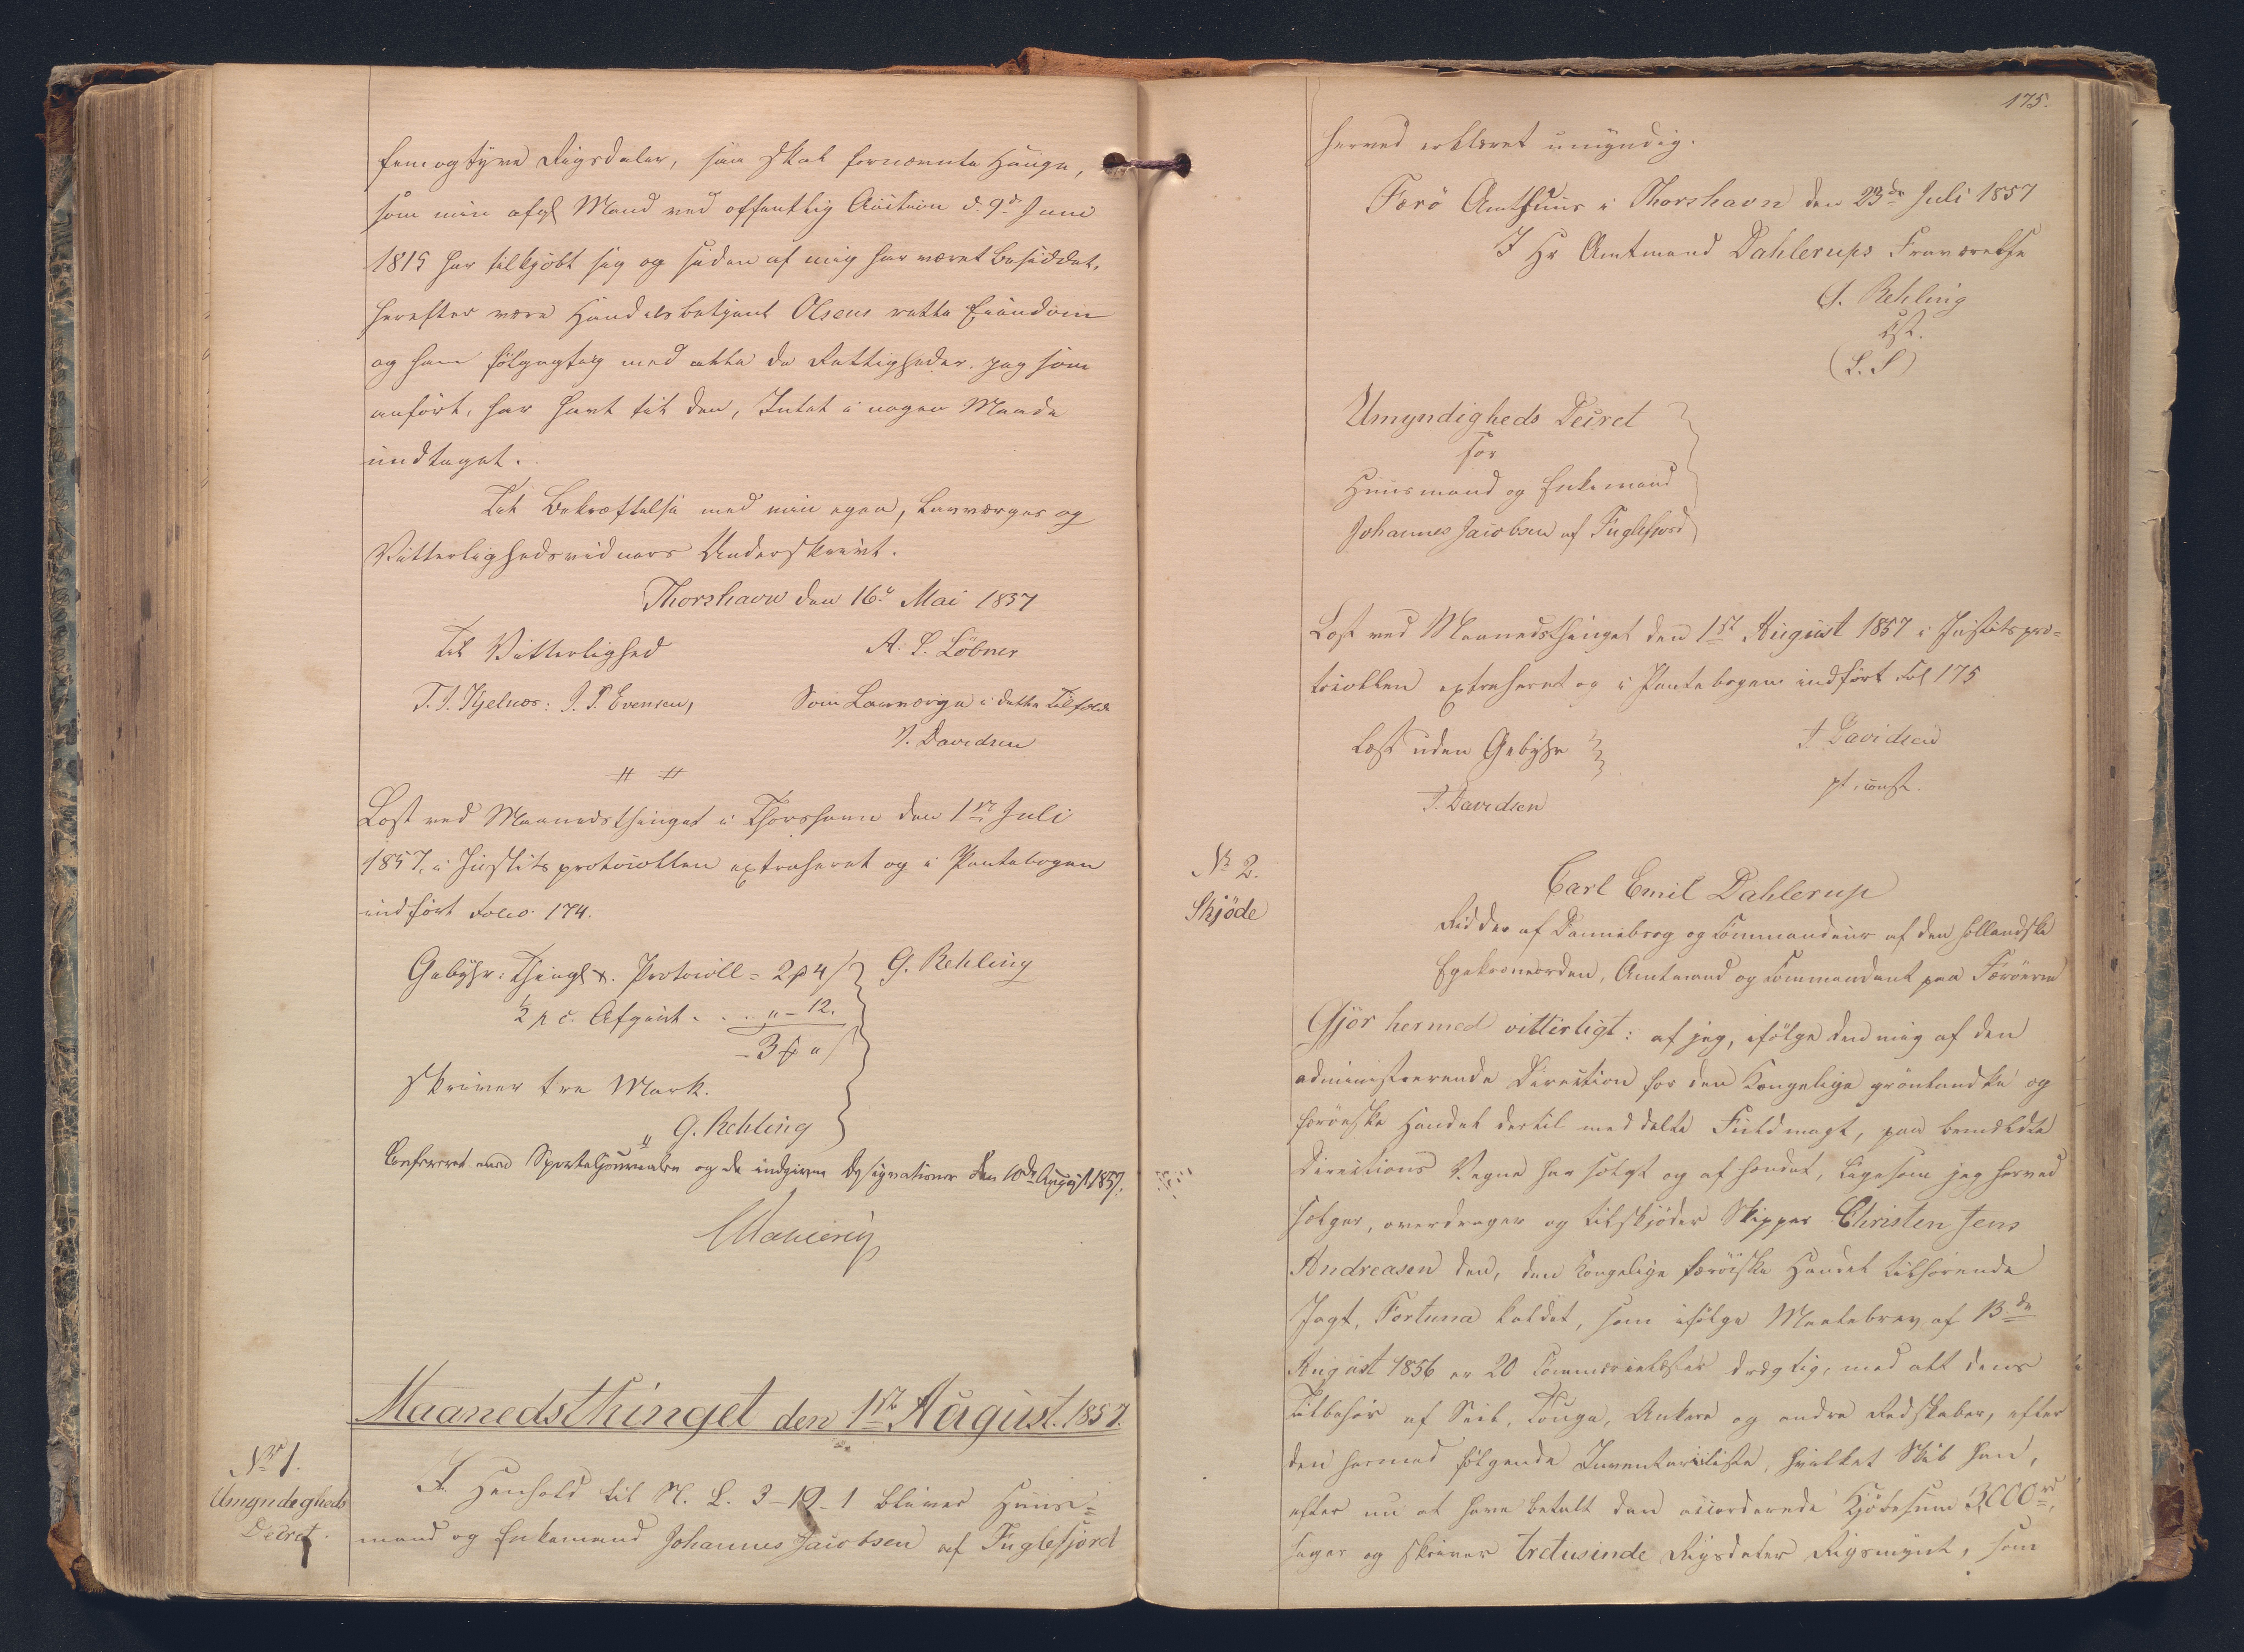 femogtyve Rigsdaler, saa skal fornævnte Hauge,
som min afg. Mand ved offentlig Auction d. 9de Juni
1819 har tilkjøbt sig og siden af mig har været besiddet,
herefter være Handelsbetjent Olsens rette Eiendom
og ham følgagtig med alle de Rettigheder jeg som
anført, har havt til den, Intet i nogen Maade
undtaget.
Til Bekræftelse med min egen, Lavværges og
Vitterlighedsvidners Underskrivt.
Thorshavn den 16de Mai 1857
Til Vitterlighed
A. L. Löbner
T. J. Kjelnæs: J. P. Evensen,
Som Lavværge i dette Tilfælde
J. Davidsen
Læst ved Maanedsthinget i Thorshavn den 1ste Juli
1857, i Justitsprotocollen extraheret og i Pantebogen
indført Folio 174.
Gebyhr: Thingl. Protocoll = 2 4
G. Rehling
½ p c. Afgivt . . . „ – 12.
3 „
skriver tre Mark.
G. Rehling
Confereret med Sporteljournalen og de indgivne Designationer den 10de August 1857.
Maanedsthinget den 1ste August. 1857.
No 1.
Umyndigheds
Decret.
I Henhold til N. L. 3-19-1 bliver Huus=
mand og Enkemand Johannes Jacobsen af Fuglefjord
175.
herved erklæret umyndig.
Færö Amthuus i Thorshavn den 23de Juli 1857
I Hr Amtmand Dahlerups Fraværelse
G. Rehling
cst.
(L. S)
Umyndigheds Decret
for
Huusmand og Enkemand
Johannes Jacobsen af Fuglefjord
Læst ved Maanedsthinget den 1ste August 1857 i Justitspro=
tocollen extraheret og i Pantebogen indført Fol 175
Læst uden Gebyhr
J. Davidsen
J. Davidsen
pt. const.
No 2.
Skjöde
Carl Emil Dahlerup
Ridder af Dannebrog og Commandeur af den hollandske
Egekroneorden, Amtmand og Commandant paa Færöerne
Gjör hermed vitterligt: at jeg, ifølge den mig af den
administrerende Direction for den Kongelige grönlandske og
færöeske Handel dertil meddelte Fuldmagt, paa bemeldte
Directions Vegne har solgt og afhændet, ligesom jeg herved
sælger, overdrager og tilskjöder Skipper Christen Jens
Andreasen den, den Kongelige færöiske Handel tilhörende
Jagt, Fortuna kaldet, som ifølge Maalebrev af 13de
August 1856 er 20 Commercelæster drægtig, med alt dens
Tilbehör af Seil, Touge, Ankere og andre Redskaber, efter
den hermed følgende Inventariiliste, hvilket Skib han,
efter nu at have betalt den accorderede Kjöbesum 3000 rd,
siger og skriver tretusinde Rigsdaler Rigsmynt, som